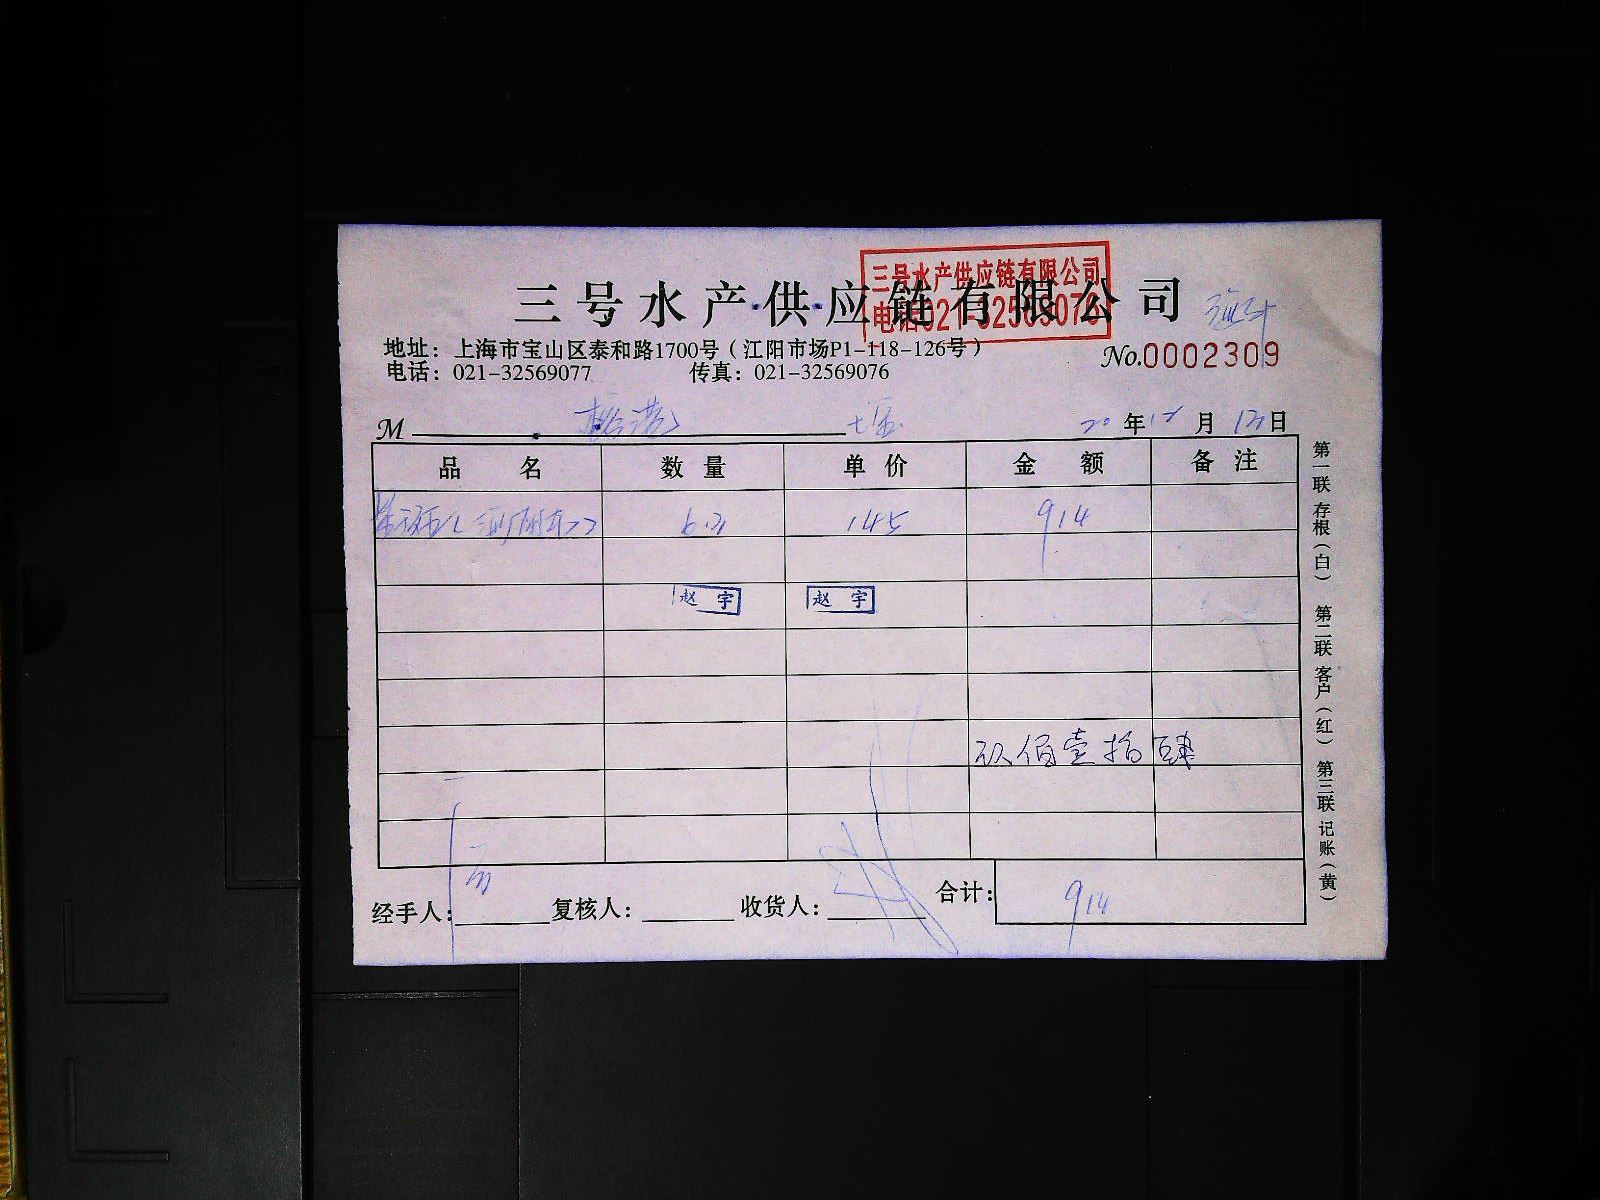 三号水产供应链有限公司
三号水产供应链有限公司
电话021-32569076
地址：上海市宝山区泰和路1700号（江阳市场P1-118-126号）
No.0002309
电话：021-32569077 传真：021-32569076
M 七宝 20年12月13日
品名 数量 单价 金额 备注
6.3 145 914
赵宇 赵宇
玖佰壹拾肆
经手人： 复核人： 收货人： 合计： 914
第一联 存根（白） 第二联 客户（红） 第三联 记账（黄）